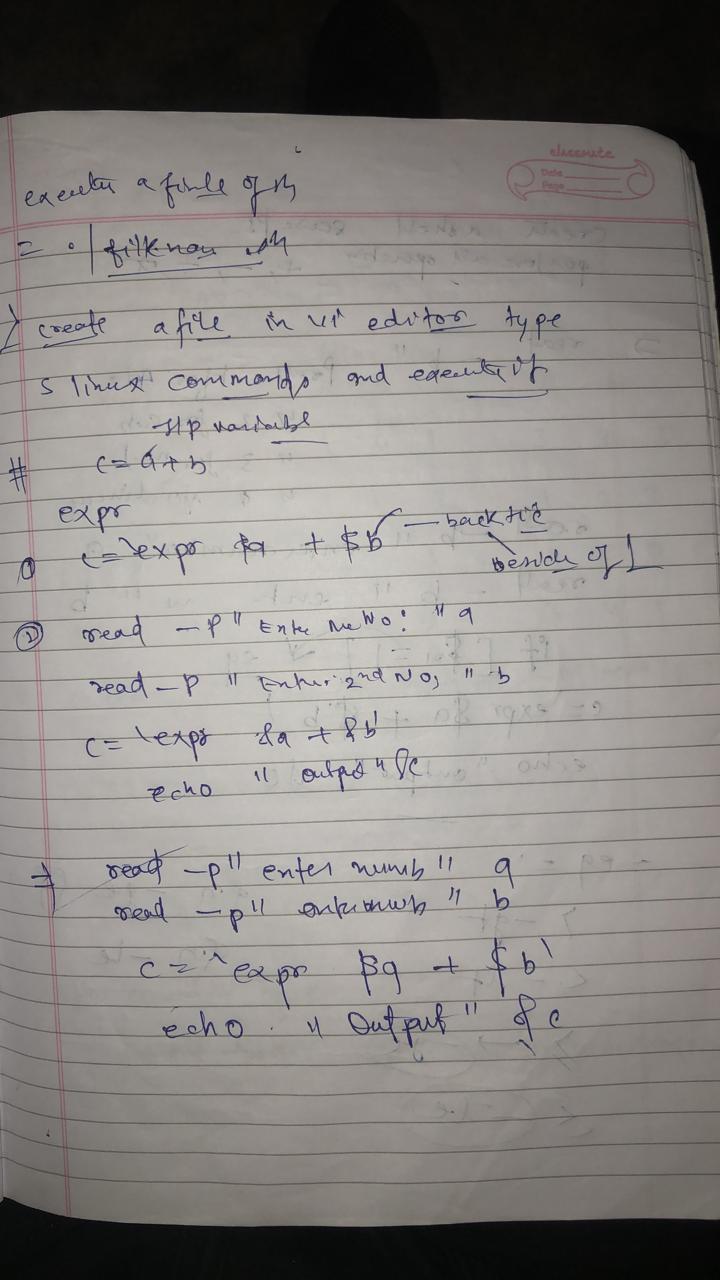 classmate
Date
Page
execute a file of sh
= ./filename .sh
> create a file in vi editor type
5 linux commands and execute it
I/p variable
# c= a+b
expr
① c=`expr $a + $b` — backtic
beside of 1
② read -p " Enter No: " a
read -p " Enter 2nd No, " b
c= `expr $a + $b`
echo " output " $c
⇒ read -p " enter numb " a
read -p " enter numb " b
c = `expr $a + $b`
echo " Output " $c